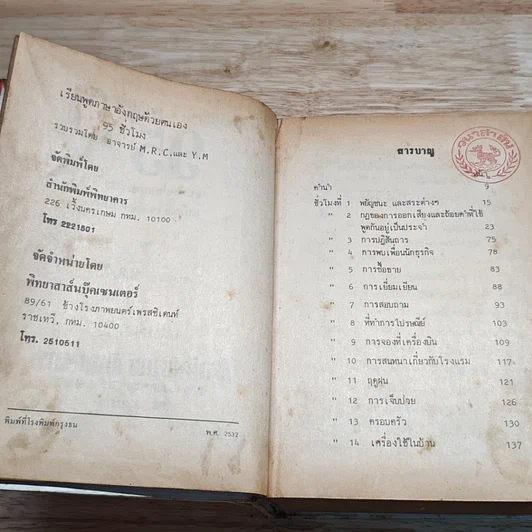 เรียนพูดภาษาอังกฤษด้วยตนเอง
95 ชั่วโมง
รวบรวมโดย อาจารย์ M.R.C.และ Y.M
จัดพิมพ์โดย
สำนักพิมพ์พิทยาคาร
226 เวิ้งนครเกษม กทม. 10100
โทร 2221801
จัดจำหน่ายโดย
พิทยาสาส์นบุ๊คเซนเตอร์
89/61 ข้างโรงภาพยนตร์เพรสซิเดนท์
ราชเทวี, กทม. 10400
โทร. 2510511
พิมพ์ที่โรงพิมพ์กรุงธน พ.ศ. 2532
สารบาญ
หน้า
คำนำ 9
ชั่วโมงที่ 1 พยัญชนะ และสระต่างๆ 15
" 2 กฎของการออกเสียงและถ้อยคำที่ใช้
พูดกันอยู่เป็นประจำ 23
" 3 การปฏิสันถาร 75
" 4 การพบเพื่อนนักธุรกิจ 78
" 5 การซื้อขาย 83
" 6 การเยี่ยมเยียน 88
" 7 การสอบถาม 93
" 8 ที่ทำการไปรษณีย์ 103
" 9 การจองที่เครื่องบิน 109
" 10 การสนทนาเกี่ยวกับโรงแรม 117
" 11 ฤดูฝน 121
" 12 การเจ็บป่วย 126
" 13 ครอบครัว 130
" 14 เครื่องใช้ในบ้าน 137